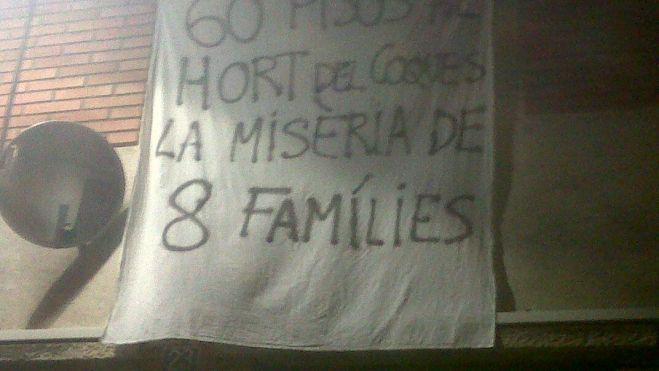 60 PISOS AL
HORT DEL COQUES
LA MISÈRIA DE
8 FAMÍLIES
23